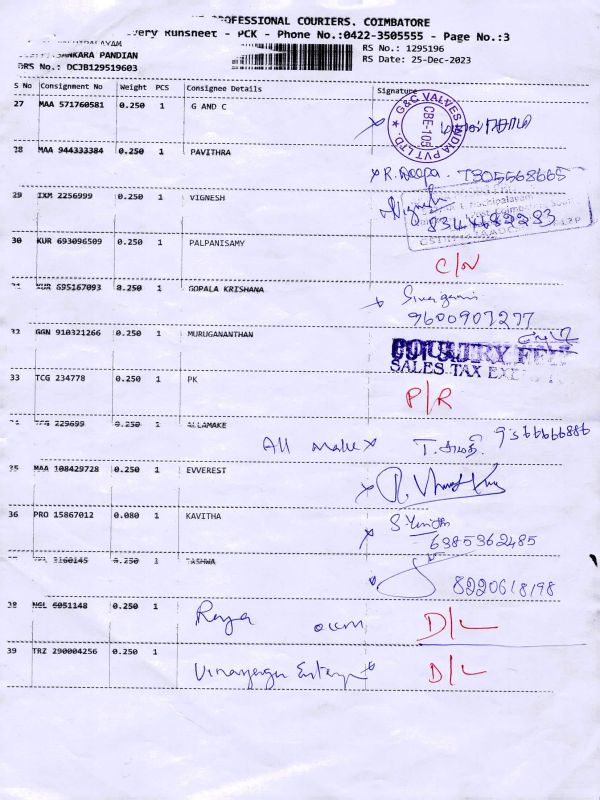 PROFESSIONAL COURIERS. COIMBATORE
Runsheet - PCK - Phone No.:0422-3505555 - Page No.:3
SANKARA PANDIAN
DRS No.: DCJB129519603
RS No.: 1295196
RS Date: 25-Dec-2023
S No Consignment No Weight PCS Consignee Details Signature
27 MAA 571760581 0.250 1 G AND C
G&C VALVES INDIA PVT LTD. CBE-105
28 MAA 944333384 0.250 1 PAVITHRA
R. Deepa. 7305568665
29 IXM 2256999 0.250 1 VIGNESH
Vignesh
8344682283
30 KUR 693096509 0.250 1 PALPANISAMY
C/N
31 KUR 695167093 0.250 1 GOPALA KRISHANA
Sivagami
9600907277
32 GGN 910321266 0.250 1 MURUGANANTHAN
SALES TAX
33 TCG 234778 0.250 1 PK
P/R
229699 0.250 1 ALLAMAKE
All make T.
35 MAA 108429728 0.250 1 EVVEREST
36 PRO 15867012 0.080 1 KAVITHA
6385362485
3160145 0.250 1
8220618198
38 NGL 6051148 0.250 1
D/L
39 TRZ 290004256 0.250 1
D/L